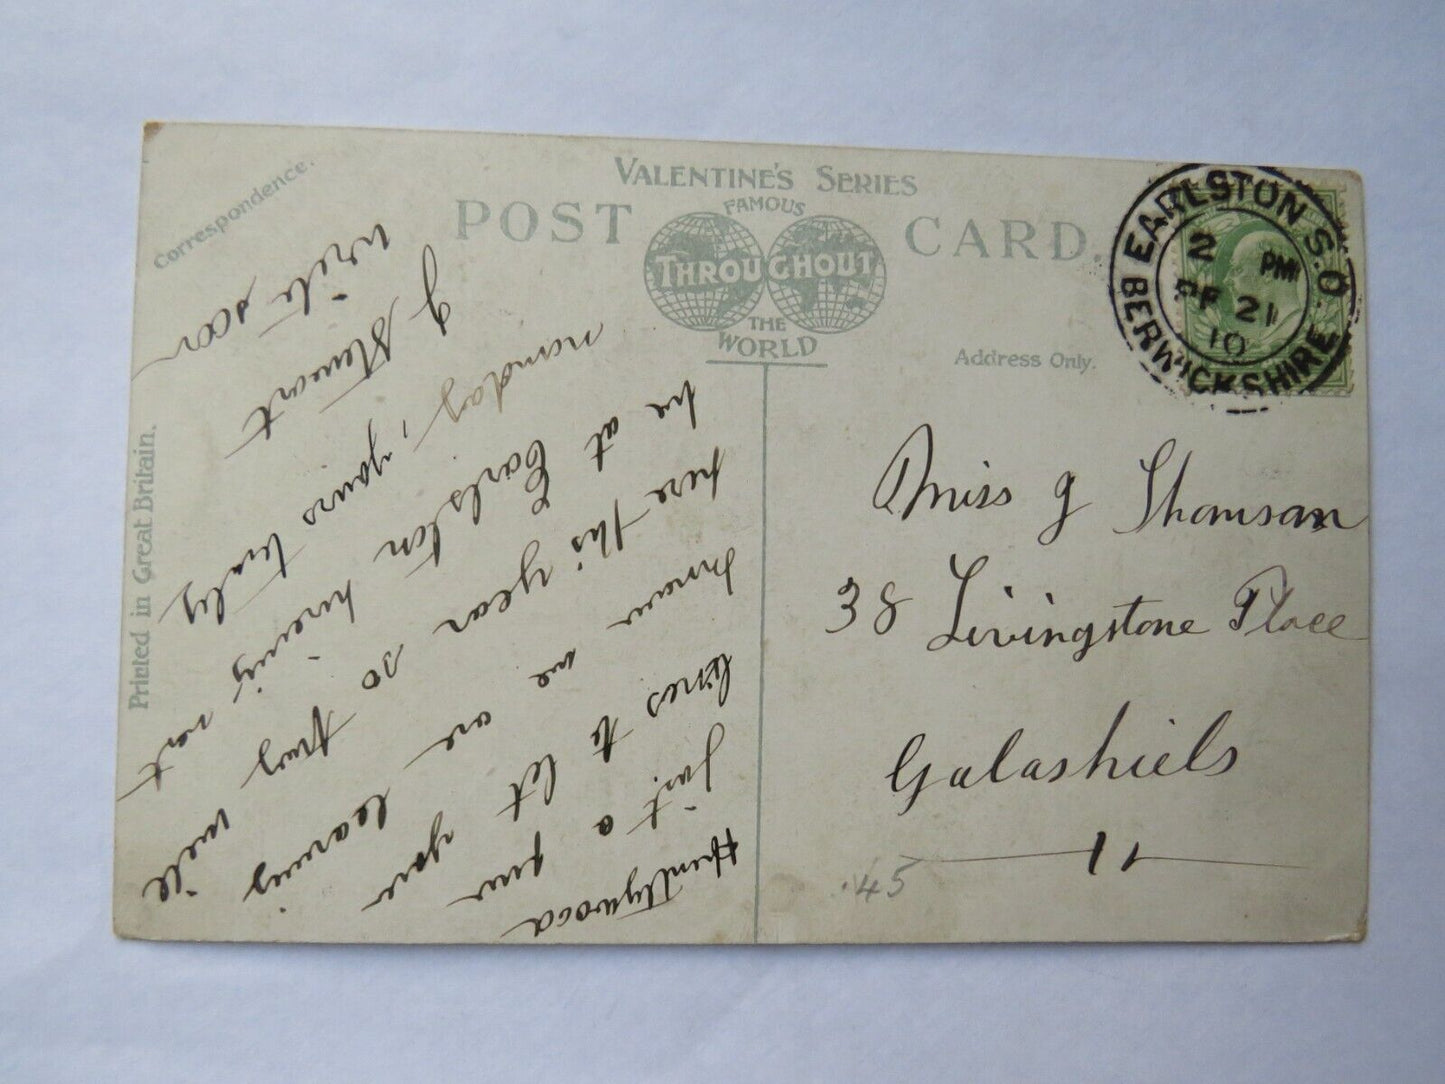 Correspondence.
VALENTINE'S SERIES
POST CARD.
FAMOUS
THROUGHOUT
THE
WORLD
Printed in Great Britain.
Address Only.
EARLSTON S.O.
2 PM
21
10
BERWICKSHIRE
Miss J Thomson
38 Livingstone Place
Galashiels
11
45
Huntlywood
Just a few
lines to let you
know we are leaving
here this year so they will
be at Earlston hireing next
monday, yours truly
J Stewart
write soon